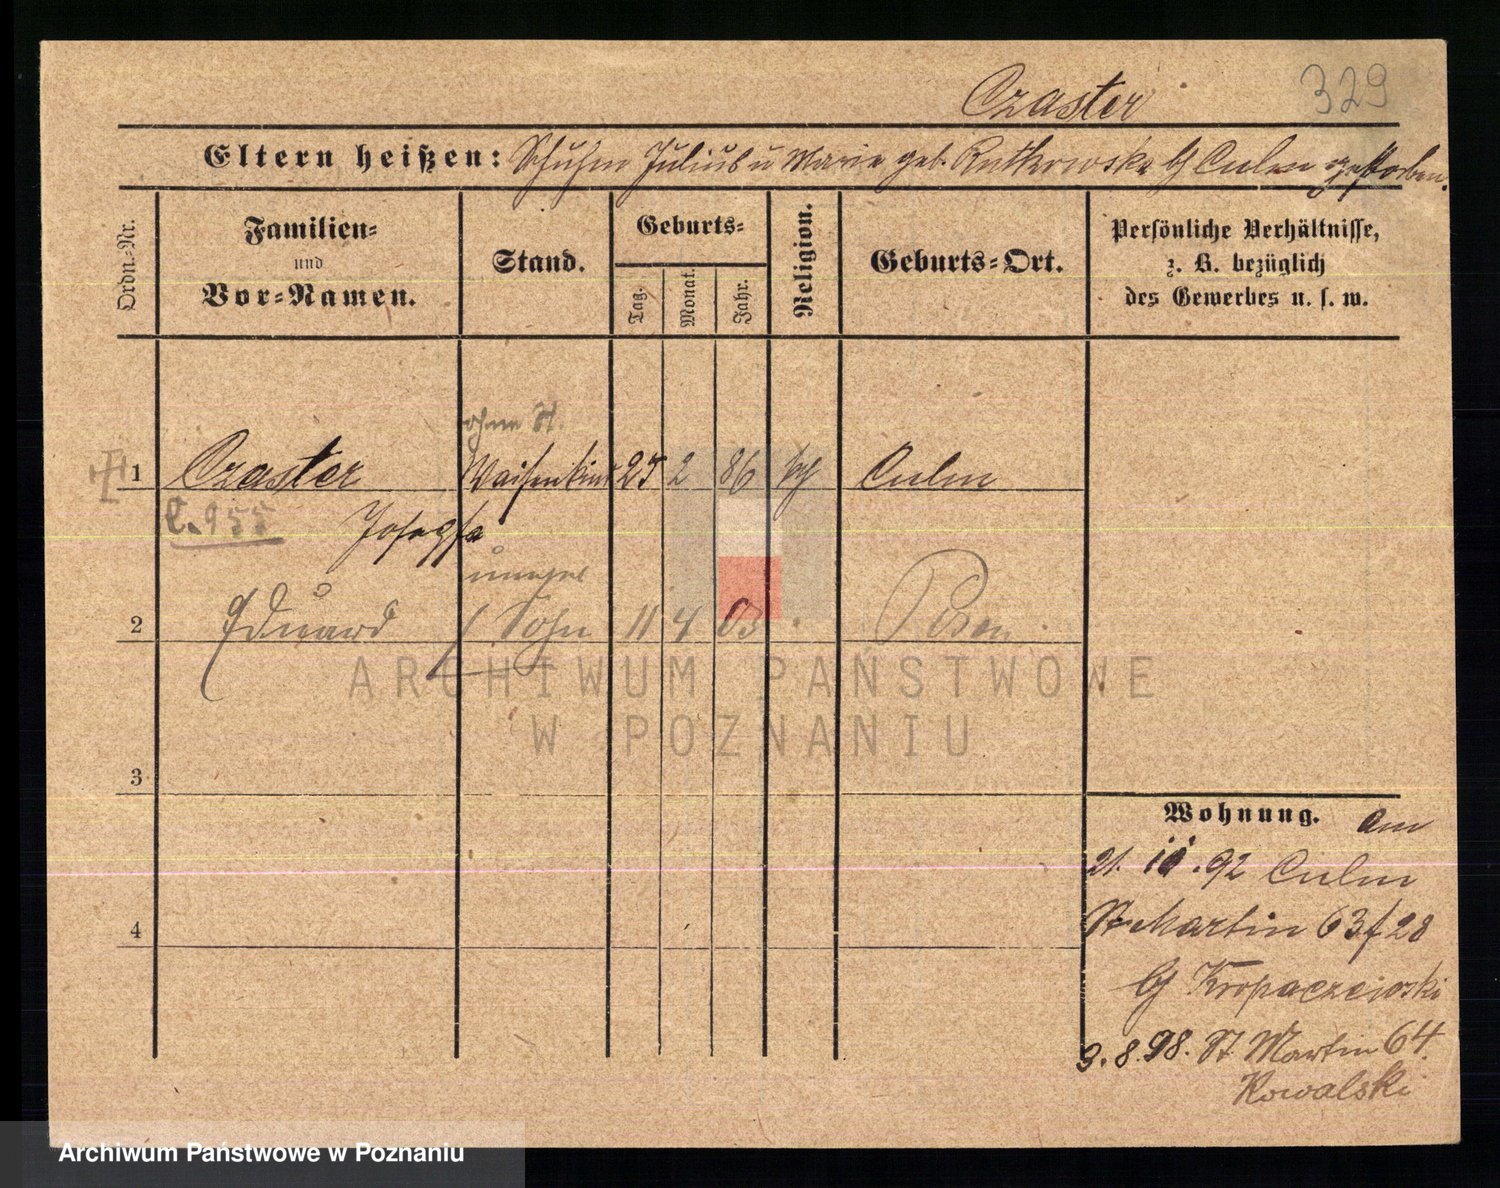 Czaster
329
Eltern heißen: Schuhm Julius u Marie geb. Rutkowska Culm gestorben.
Ordn.-Nr.
Familien-
und
Vor-Namen.
Stand.
Geburts-
Tag.
Monat.
Jahr.
Religion.
Geburts-Ort.
Persönliche Verhältnisse,
z. B. bezüglich
des Gewerbes u. s. w.
ohne St.
1 Czaster Waisenkind 25 2 86 kg Culm
C. 955
Josepfa
unehel
2 Eduard Sohn 11 4 03 Posen
ARCHIWUM PAŃSTWOWE
W POZNANIU
3
Wohnung. am
21. 10. 92 Culm
4 St Martin 63 f 28
Kropaczewski
3. 8. 98. St Martin 64.
Kowalski
Archiwum Państwowe w Poznaniu